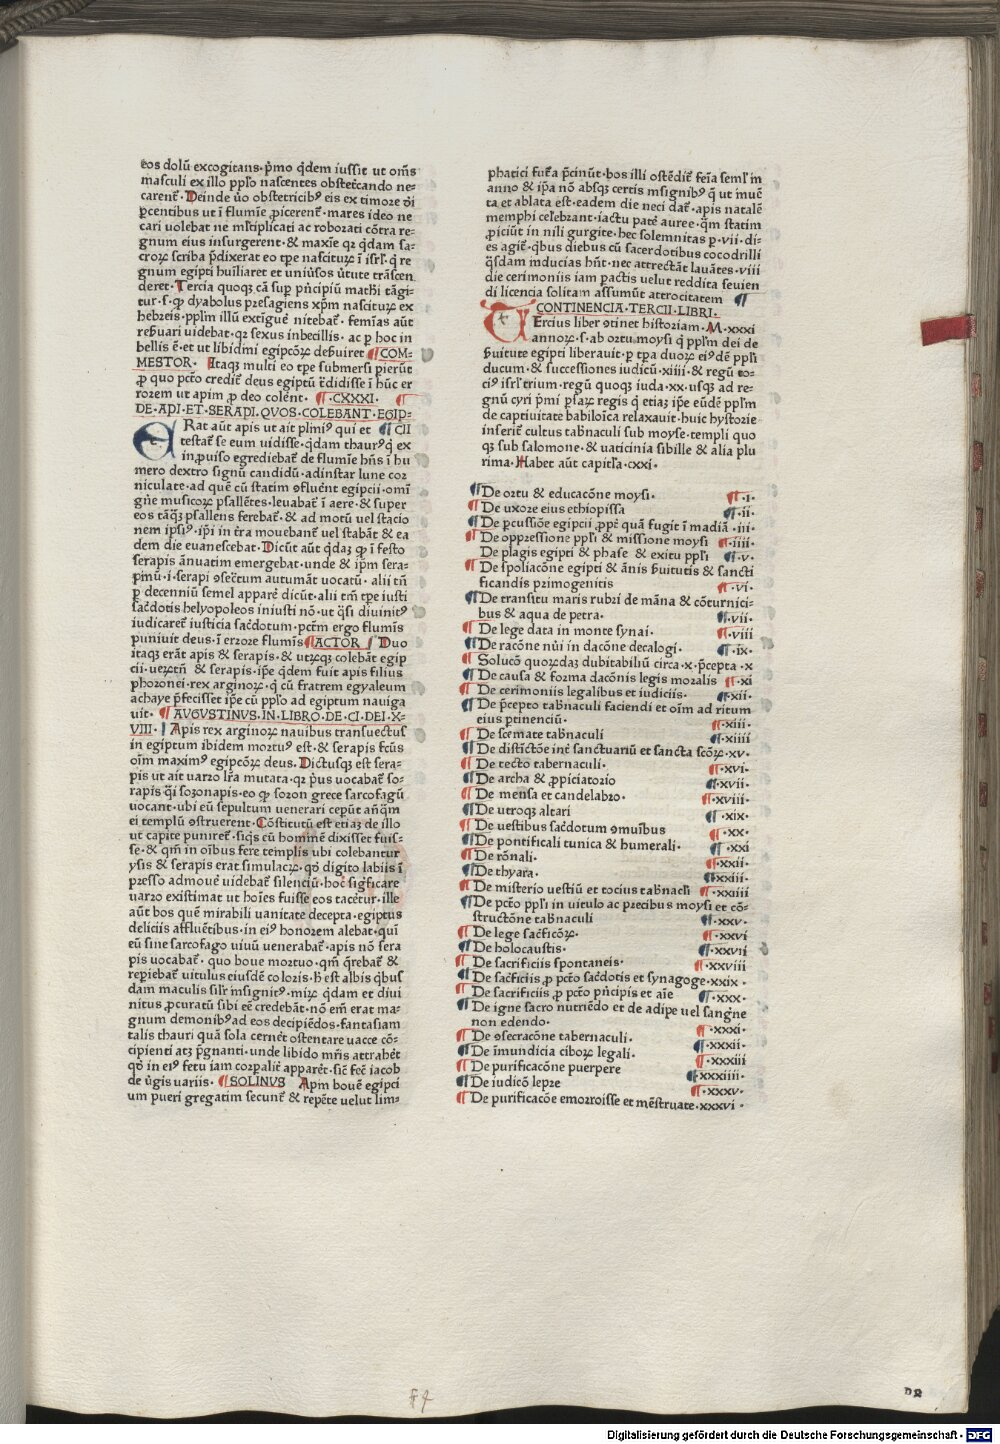 eos dolū excogitans·p̄mo q̄dem iussit ut om̄s
masculi ex illo pp̄lo nascentes obstetᷣcando ne-
carent᷑·Deinde ūo obstetricib⁹ eis ex timore
ꝑcentibus ut ī flumīe ꝓicerent᷑·mares ideo ne
cari uolebat ne ml̄tiplicati ac roborati cōtra re-
gnum eius insurgerent·& maxīe qꝛ q̄dam sa-
croꝝ scriba p̄dixerat eo tp̄e nasciturū ī isrl̄·q̄ re
gnum egipti huīliaret et uniūsos ūtute trāscen
deret·Tercia quoqꝫ cā suꝑ pn̄cipiū
tur·s·ꝙ dyabolus presagiens xp̄m nasciturꝝ ex
hebreis·pplm̄ illū extigue᷑ nitebat᷑·femīas aūt
uidebat·qꝛ sexus inbecillis·ac ꝑ hoc in
bellis ē·et ut libidini egipcōꝝ
MESTOR·Itaqꝫ multi eo tp̄e submersi perierūt
ꝓ quo pctō credit᷑ deus egiptū hūc er
rorem ut apim ꝓ deo colent·¶·CXXXI·¶
DE·API·ET·SERAPI·QVOS·COLEBANT·EGIP-
ERat aūt apis ut ait plini⁹ qui et ¶ CII
testat᷑ se eum uidisse·q̄dam thaur⁹ q̄ ex
inꝓuiso egrediebat᷑ de flumīe hn̄s ī hu
mero dextro signū candidū·adinstar lune cor
niculate·ad quē cū statim ꝯfluent egipcii·omī
gn̄e musicoꝝ psallētes·leuabat᷑ ī aere·& super
eos tāq̄ꝫ psallens ferebat᷑·& ad motū uel stacio
nem ipsi⁹·ip̄i in tr̄a mouebant᷑ uel stabāt & ea
dem die euanescebat·Dicūt aūt q̄daꝫ ꝙ ī festo
serapis ānuatim emergebat·unde & ip̄m sera-
pinū·i·serapi ꝯsect̄um autumāt uocatū·alii tn̄
ꝑ decenniū semel apparē dicūt·alii tm̄ tp̄e iusti
sac̄dotis helyopoleos iniusti nō·ut q̄si diuinit⁹
iudicaret᷑ iusticia sac̄dotum·pctm̄ ergo flumīs
puniuit deus·ī errore flumīs ¶ ACTOR Duo
itaqꝫ erāt apis & serapis·& utꝝqꝫ colebāt egip
cii·ueꝝtn̄ & serapis·ip̄e q̄dem fuit apis filius
phoronei·rex arginoꝝ·q̄ cū fratrem egyaleum
achaye p̄fecisset ip̄e cū pp̄lo ad egiptum nauiga
uit·¶ AVGVSTINVS·IN·LIBRO·DE·CI·DEI·X-
VIII·Apis rex arginoꝝ nauibus transuectus
in egiptum ibidem mortu⁹ est·& serapis fc̄us
oīm maxim⁹ egipcōꝝ deus·Dictusqꝫ est sera-
pis ut ait uarro lr̄a mutata·qꝛ p̄us uocabat᷑ so-
rapis q̄si sozonapis·eo ꝙ soron grece sarcofagū
uocant·ubi eū sepultum uenerari cepūt an̄q̄m
ei templū ꝯstruerent·Cōstitutū est etiaꝫ de illo
ut capite puniret᷑·siq̄s cū hominē dixisset fuis-
se·& qm̄ in oībus fere templis ubi colebantur
ysis & serapis erat simulacꝝ·qd̄ digito labiis ī
presso admoue᷑ uidebat᷑ silenciū·hoc sig̃ficare
uarro existimat ut hoīes fuisse eos tacētur·ille
aūt bos quē mirabili uanitate decepta·egiptus
deliciis affluētibus·in ei⁹ honorem alebat·quī
eū sine sarcofago uiuū uenerabat᷑·apis nō sera
pis uocabat᷑·quo boue mortuo·qm̄ q̄rebat᷑ &
repiebat᷑ uitulus eiusdē coloris·h̄ est albis q̄bus
dam maculis silr̄ insignit⁹·miꝝ q̄dam et diui
nitus ꝓcuratū sibi eē credebāt·nō em̄ erat ma-
gnum demonib⁹ ad eos decipiēdos·fantasiam
talis thauri quā sola cernēt ostentare uacce cō-
cipienti atqꝫ p̄gnanti·unde libido mr̄is attrahēt
qd̄ in ei⁹ fetu iam corpalit᷑ apparēt·sic̄ fec̄ iacob
de ūgis uariis·¶ SOLINVS Apim bouē egipci
um pueri gregatim secunt᷑ & repēte uelut lim-
phatici fut̄a p̄cinūt·hos illi ostēdit᷑ feīa seml̄ in
anno & ip̄a nō absqꝫ certis insignib⁹ q̄ ut inuē
ta et ablata est·eadem die neci dat᷑·apis natalē
memphi celebrant·iactu patē auree·q̄m statim
ꝓiciūt in nili gurgite·hec solemnitas ꝑ·vii·di-
es agit᷑·q̄bus diebus cū sacerdotibus cocodrilli
q̄sdam inducias hn̄t·nec attrectāt lauātes·viii
die cerimoniis iam pactis uelut reddita seuien
di licencia solitam assumūt attrocitatem ¶
CONTINENCIA·TERCII·LIBRI·
TErcius liber ꝯtinet historiam·M·xxxi
annoꝝ·s·ab ortu moysi q̄ pplm̄ dei de
ẜuitute egipti liberauit·ꝑ tp̄a duoꝝ ei⁹dē pp̄li
ducum·& successiones iudicū·xiiii·& regū to-
ci⁹ isrl̄ trium·regū quoqꝫ iuda·xx·usqꝫ ad re-
gnū cyri p̄mi regis q̄ etiaꝫ ip̄e eūdē pplm̄
de captiuitate babiloīca relaxauit·huic hystorie
inserit᷑ cultus tab̄naculi sub moyse·templi quo
qꝫ sub salomone·& uaticinia sibille & alia plu
rima·Habet aūt capitl̄a·cxxi·
¶ De ortu & educacōne moysi· ¶·i·
¶ De uxore eius ethiopissa ¶·ii·
¶ De ꝑcussiōe egipcii ꝓpt̄ quā fugit ī madiā·iii·
¶ De oppressione pp̄li & missione moysi ¶·iiii·
De plagis egipti & phase & exitu pp̄li ¶·v·
¶ De spoliacōne egipti & ānis ẜuitutis & sancti
ficandis primogenitis ¶·vi·
¶ De transitu maris rubri de māna & cōturnici-
bus & aqua de petra· ¶·vii·
¶ De lege data in monte synai· ¶·viii
¶ De racōne nūi in dacōne decalogi· ¶·ix·
¶ Solucō quoꝝdaꝫ dubitabiliū circa·x·p̄cepta·x
¶ De causa & forma dacōnis legis moralis ¶·xi
¶ De cerimoniis legalibus et iudiciis· ¶·xii·
¶ De p̄cepto tab̄naculi faciendi et oīm ad ritum
eius ꝑtinenciū· ¶·xiii·
¶ De scemate tab̄naculi ¶·xiiii
¶ De distīctōe int᷑ sanctuariū et sancta scōꝝ·xv·
¶ De tecto tabernaculi· ¶·xvi·
¶ De archa & ꝓpiciatorio ¶·xvii·
¶ De mensa et candelabro· ¶·xviii·
¶ De utroqꝫ altari ¶·xix·
¶ De uestibus sac̄dotum ꝯmuībus ¶·xx·
¶ De pontificali tunica & humerali· ¶·xxi
¶ De rōnali· ¶·xxii·
¶ De thyara· ¶·xxiii·
¶ De misterio uestiū et tocius tab̄nacl̄i ¶·xxiiii
¶ De pctō pp̄li in uitulo ac precibus moysi et cō-
structōne tab̄naculi ¶·xxv·
¶ De lege sac̄ficōꝝ· ¶·xxvi
¶ De holocaustis· ¶·xxvii
¶ De sacrificiis spontaneis· ¶·xxviii
¶ De sac̄ficiis ꝓ pctō sac̄dotis et synagoge·xxix·
¶ De sacrificiis ꝓ pctō pn̄cipis et aīe ¶·xxx·
¶ De igne sacro nutriēdo et de adipe uel sangne
non edendo· ¶·xxxi·
¶ De ꝯsecracōne tabernaculi· ¶·xxxii·
¶ De īmundicia ciboꝝ legali· ¶·xxxiii
¶ De purificacōne puerpere ¶·xxxiiii·
¶ De iudicō lepre ¶·xxxv·
¶ De purificacōe emoroisse et mēstruate·xxxvi·
Digitalisierung gefördert durch die Deutsche Forschungsgemeinschaft · DFG